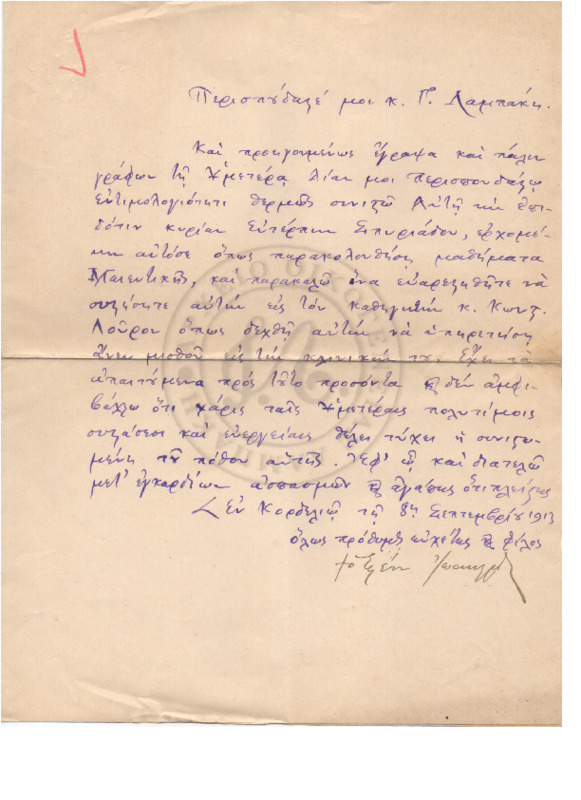 Περισπούδαστέ μοι κ. Γ. Λαμπάκη.
Καὶ προηγουμένως ἔγραψα καὶ πάλιν
γράφων τῇ Ὑμετέρᾳ λίαν μοι περισπουδάστῳ
ἐντιμολογιότητι θερμῶς συνιστῶ Αὐτῇ τὴν ἐπι-
δότιν κυρίαν Εὐτέρπην Σπυριάδου, ἐρχομέ-
νην αὐτόσε ὅπως παρακολουθήσῃ μαθήματα
Μαιευτικῆς, καὶ παρακαλῶ ἵνα εὐαρεστηθῆτε νὰ
συστήσητε αὐτὴν εἰς τὸν καθηγητὴν κ. Κωνστ.
Λοῦρον ὅπως δεχθῇ αὐτὴν νὰ ὑπηρετήσῃ
ἄνευ μισθοῦ εἰς τὴν κλινικήν του. Ἔχει τὰ
ἀπαιτούμενα πρὸς τοῦτο προσόντα καὶ δὲν ἀμφι-
βάλλω ὅτι χάρις ταῖς Ὑμετέραις πολυτίμοις
συστάσεσι καὶ ἐνεργείαις θέλει τύχει ἡ συνιστω-
μένη τοῦ πόθου αὐτῆς. Ἐφ' ᾧ καὶ διατελῶ
μετ' ἐγκαρδίων ἀσπασμῶν καὶ ἀγάπης ὅτι πλείστης
Ἐν Κορδελιῷ τῇ 8ῃ Σεπτεμβρίου 1913
ὅλως πρόθυμος εὐχέτης καὶ φίλος